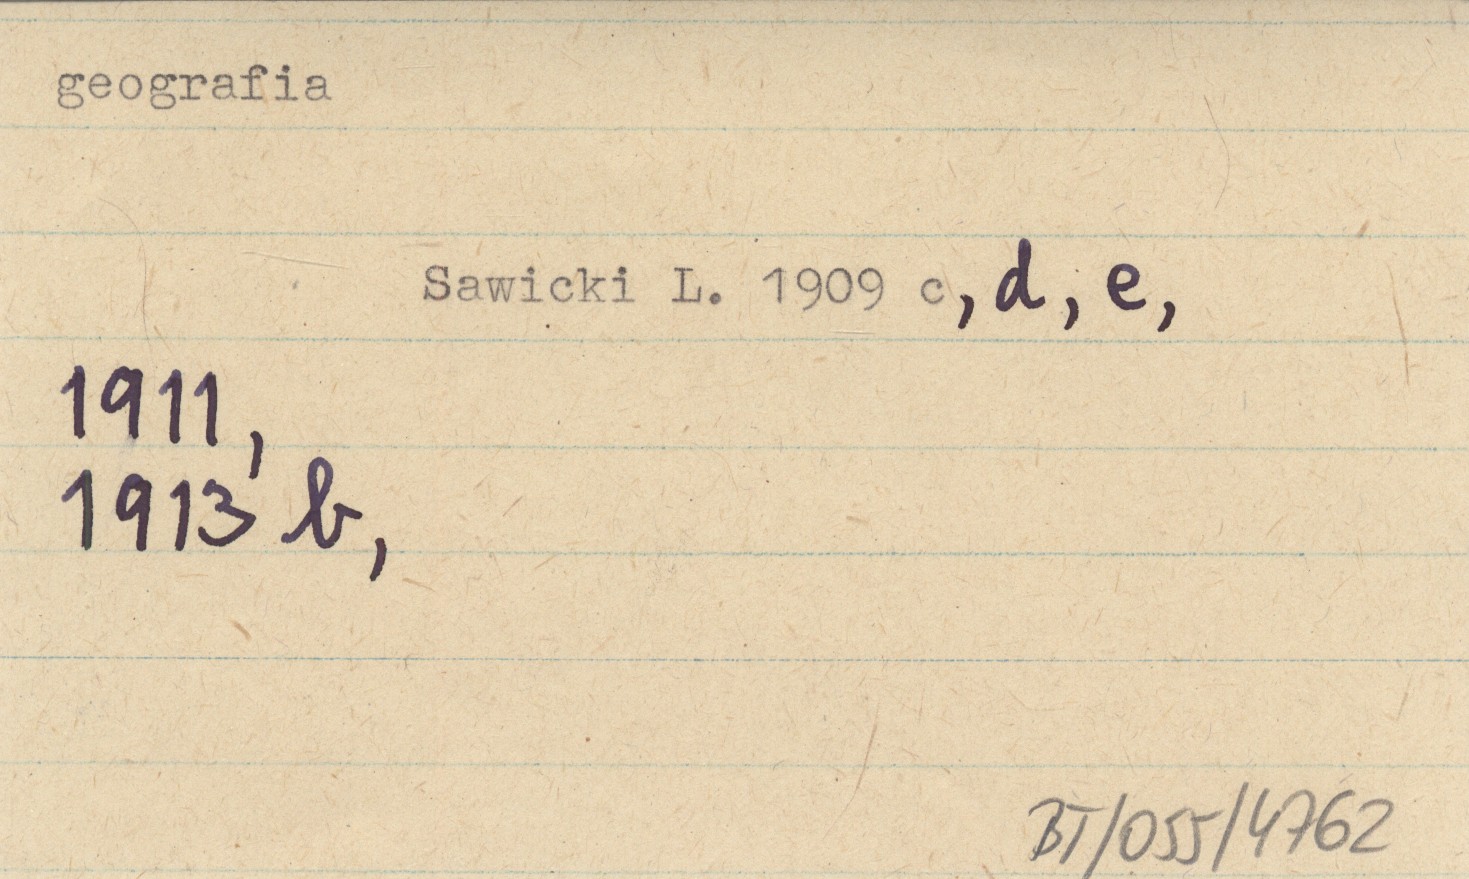 geografia
Sawicki L. 1909 c, d, e,
1911,
1913 b,
BT/055/4762